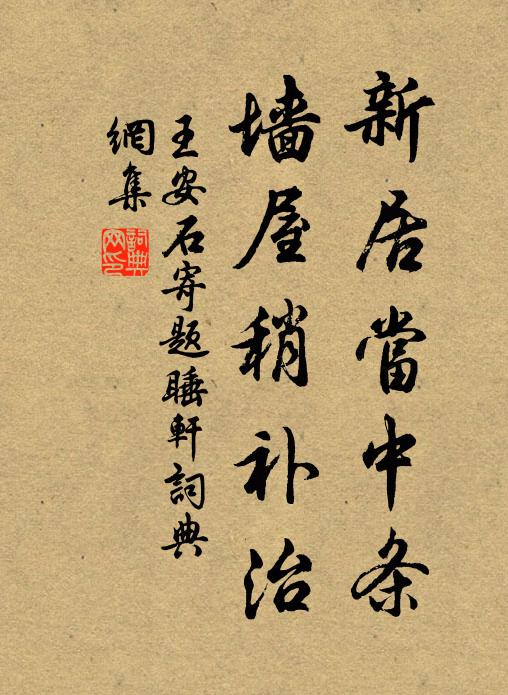 新居當中条
墙屋稍补治
王安石寄题睡軒詞典
網集
詞典
网印